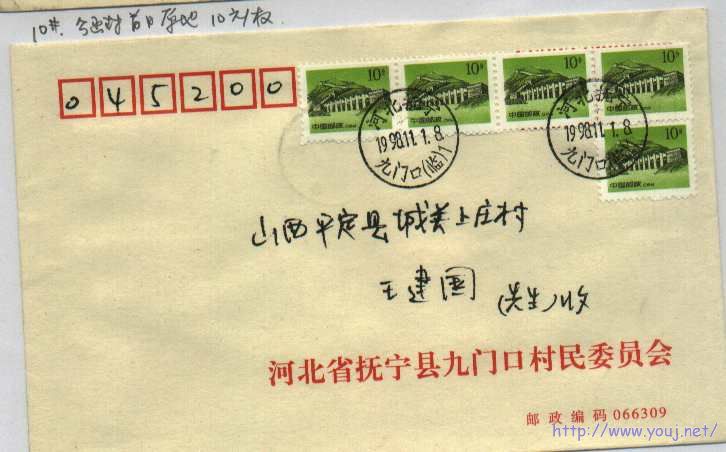 10# 公函封 首日 原地 10元/枚
045200
10分 10分 10分 10分
中国邮政 CHINA 中国邮政 CHINA 中国邮政 CHINA 中国邮政 CHINA
河北
1998.11.1.8
九门口(临)1
河北
1998.11.1.8
九门口(临)1
10分
中国邮政 CHINA
山西平定县城关上庄村
王建国 (先生)收
河北省抚宁县九门口村民委员会
邮政编码 066309
http://www.youj.net/